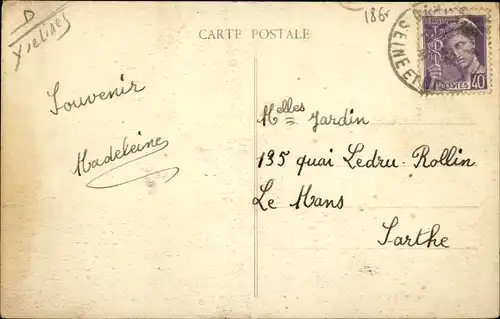 D
Yvelines
CARTE POSTALE
186
SEINE ET
POSTES
40
Souvenir
Madeleine
Melles Jardin
135 quai Ledru-Rollin
Le Mans
Sarthe